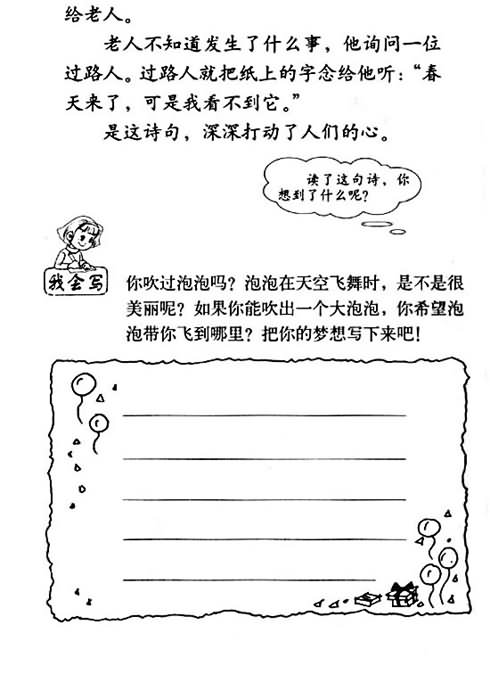 给老人。
老人不知道发生了什么事，他询问一位
过路人。过路人就把纸上的字念给他听：“春
天来了，可是我看不到它。”
是这诗句，深深打动了人们的心。
读了这句诗，你
想到了什么呢？
我会写
你吹过泡泡吗？泡泡在天空飞舞时，是不是很
美丽呢？如果你能吹出一个大泡泡，你希望泡
泡带你飞到哪里？把你的梦想写下来吧！